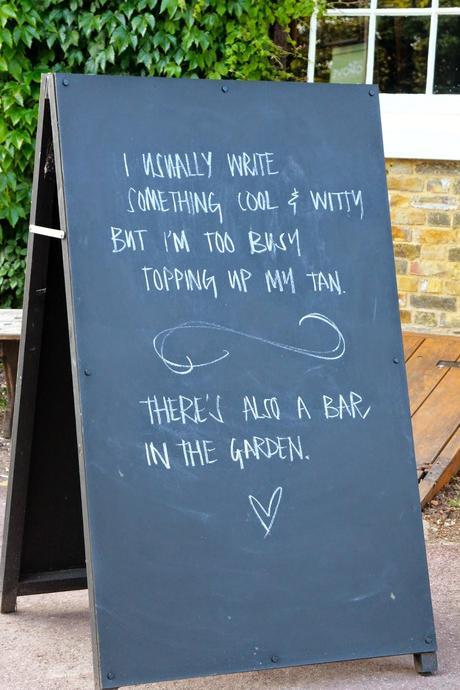 I USUALLY WRITE
SOMETHING COOL & WITTY
BUT I'M TOO BUSY
TOPPING UP MY TAN.
THERE'S ALSO A BAR
IN THE GARDEN.